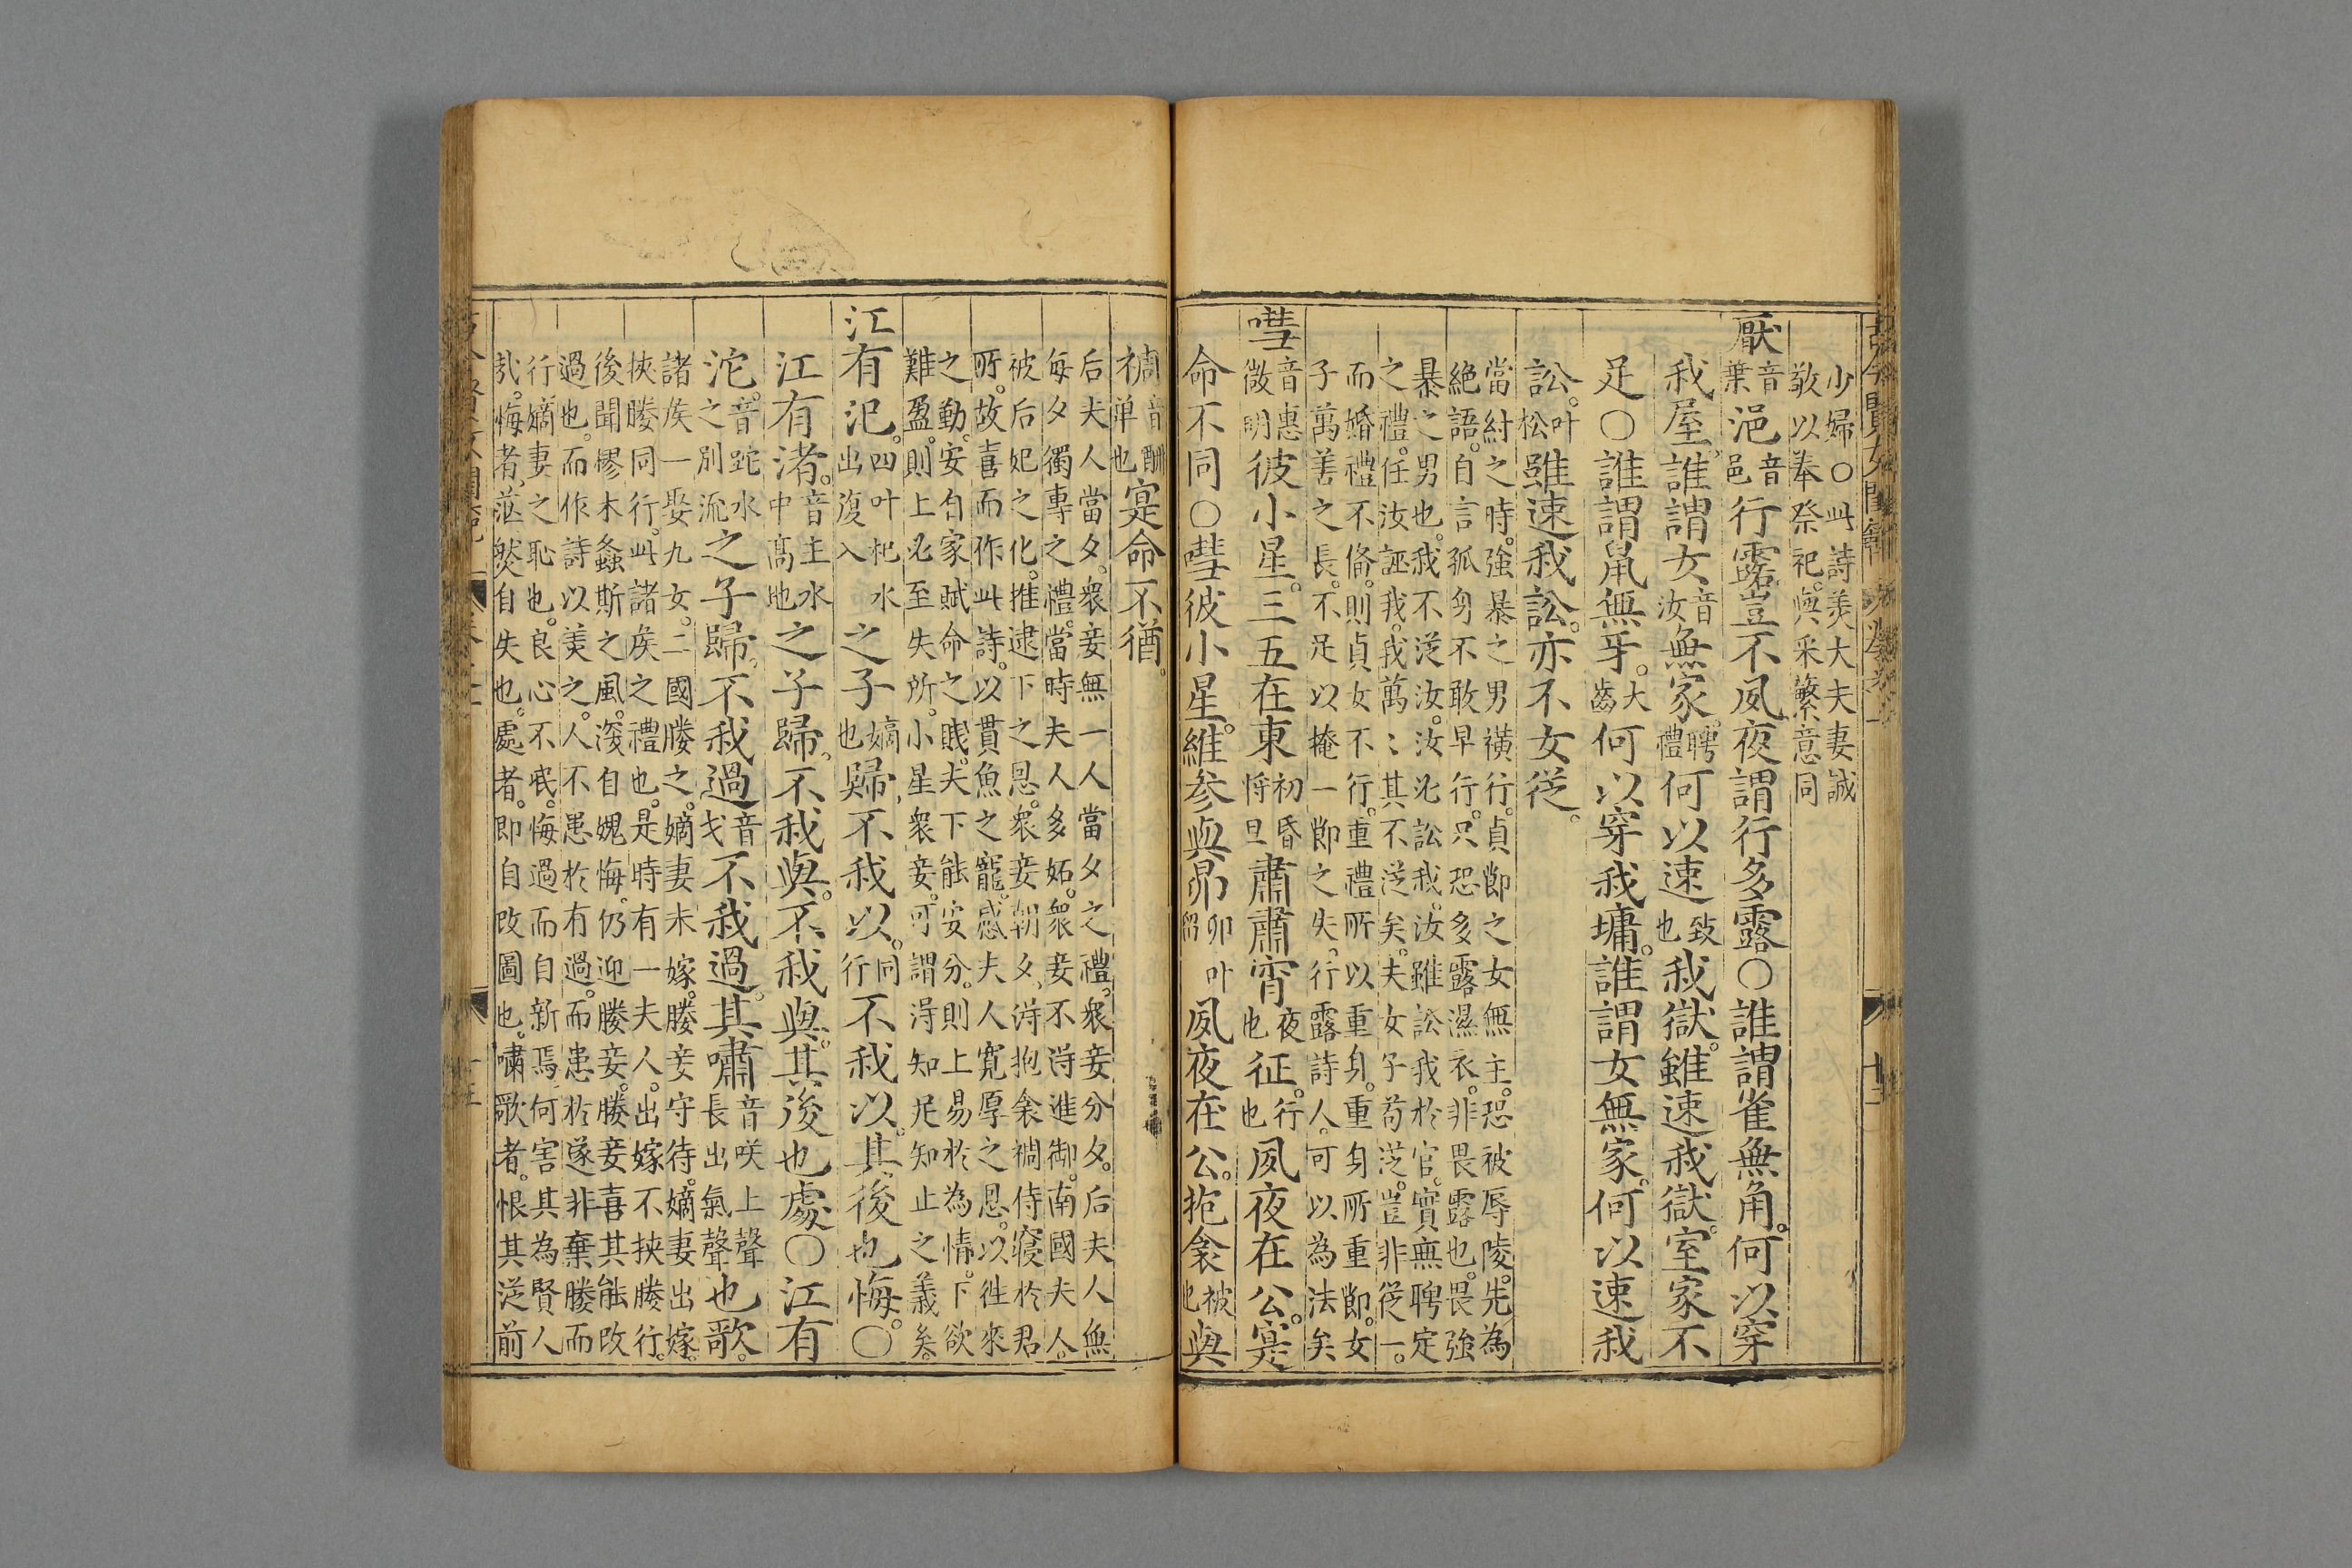 少婦○此詩美大夫妻誠
敬以奉祭祀。與采蘩意同
厭音葉浥音邑行露豈不夙夜謂行多露○誰謂雀無角。何以穿
我屋。誰謂女音汝無家。聘禮何以速致也我獄。雖速我獄。室家不
足○誰謂鼠無牙。大齒何以穿我墉。誰謂女無家。何以速我
訟。叶松雖速我訟。亦不女從。
當紂之時。強暴之男橫行。貞節之女無主。恐被辱陵。先為
絕語。自言孤身不敢早行。只恐多露濕衣。非畏露也。畏強
暴之男也。我不從汝。汝必訟我。汝雖訟我於官。實無聘定
之禮。任汝誣我。我萬〻其不從矣。夫女子苟從。豈非從一。
而婚禮不備。則貞女不行。重禮所以重身。重身所重節。女
子萬善之長。不足以掩一節之失。行露詩人。可以為法矣
嘒音惠微明彼小星。三五在東初昏將旦肅肅宵夜也征。行也夙夜在公。寔
命不同○嘒彼小星。維參與昴卯叶紹夙夜在公。抱衾被也與
裯音酬單也寔命不猶。
后夫人當夕。眾妾無一人當夕之禮。眾妾分夕。后夫人無
每夕獨專之禮。當時夫人多妬。眾妾不得進御。南國夫人。
被后妃之化。推逮下之恩。眾妾朝夕、得抱衾裯侍寢於君
所。故喜而作此詩。以貫魚之寵。感夫人寬厚之恩。以往來
之勤。安自家賦命之賤。夫下能安分。則上易於為情。下欲
難盈。則上必至失所。小星眾妾。可謂得知足知止之義矣。
江有汜。四叶杞水出復入之子嫡也歸。不我以。同行不我以。其後也悔。○
江有渚。音主水中高地之子歸。不我與。不我與。其後也處○江有
沱。音跎水之別流之子歸。不我過音戈不我過。其嘯音咲上聲長出氣聲也歌。
諸侯一娶九女。二國媵之。嫡妻未嫁。媵妾守待。嫡妻出嫁。
挾媵同行。此諸侯之禮也。是時有一夫人。出嫁不挾媵行。
後聞樛木螽斯之風。深自媿悔。仍迎媵妾。媵妾喜其能改
過也。而作詩以美之。人不患於有過。而患於遂非棄媵而
行嫡妻之恥也。良心不泯。悔過而自新焉。何害其為賢人
哉。悔者、茫然自失也。處者。即自改圖也。嘯歌者。恨其從前